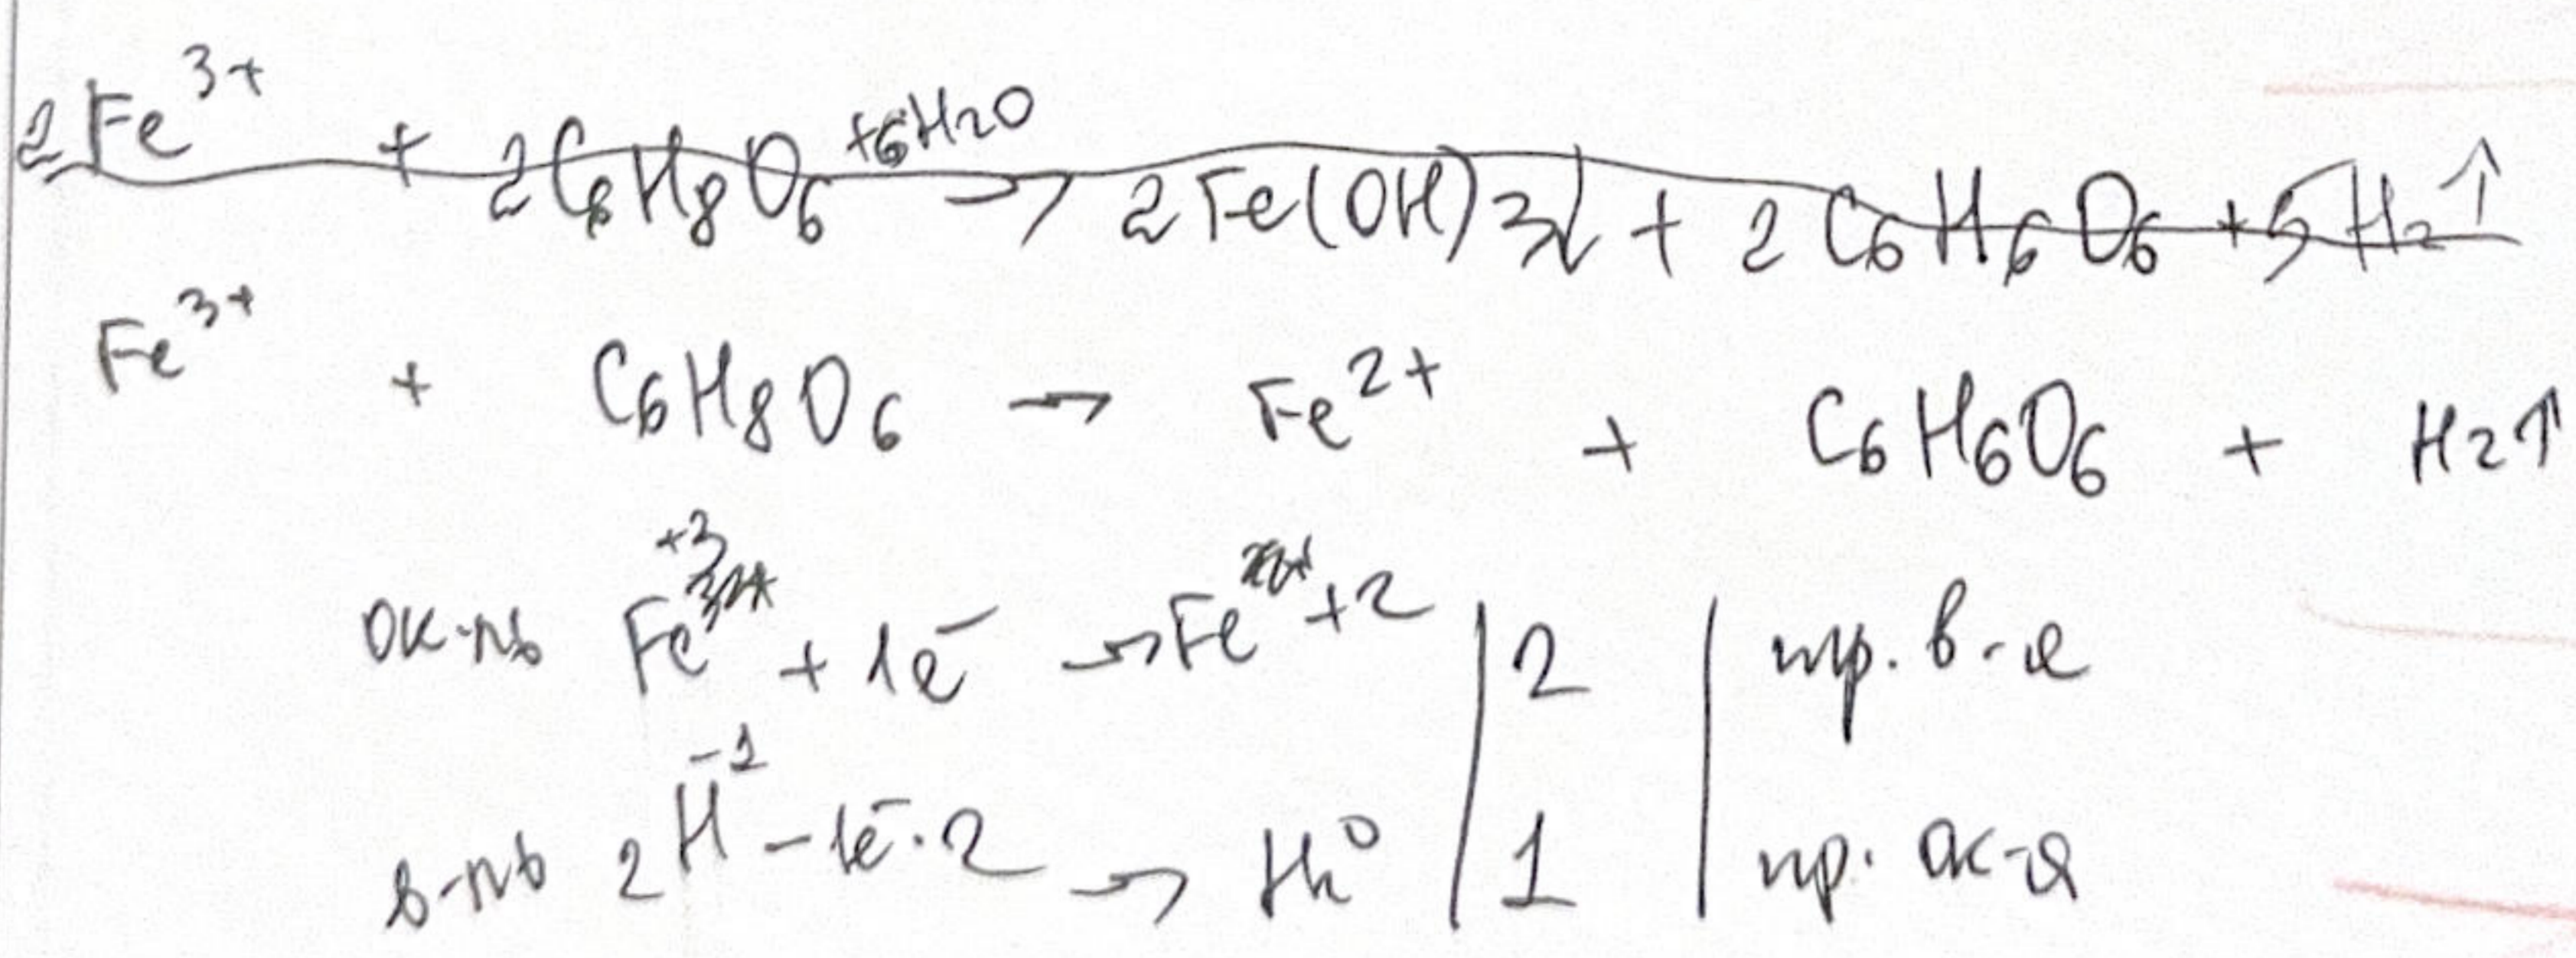 2Fe³⁺ + 2C₆H₈O₆ +6H₂O → 2Fe(OH)₃↓ + 2C₆H₆O₆ + 5H₂↑
Fe³⁺ + C₆H₈O₆ → Fe²⁺ + C₆H₆O₆ + H₂↑
ок-ль Fe⁺³ + 1e⁻ → Fe⁺² | 2 | пр. в-я
в-ль 2H⁻¹ - 1e⁻·2 → H₂⁰ | 1 | пр. ок-я